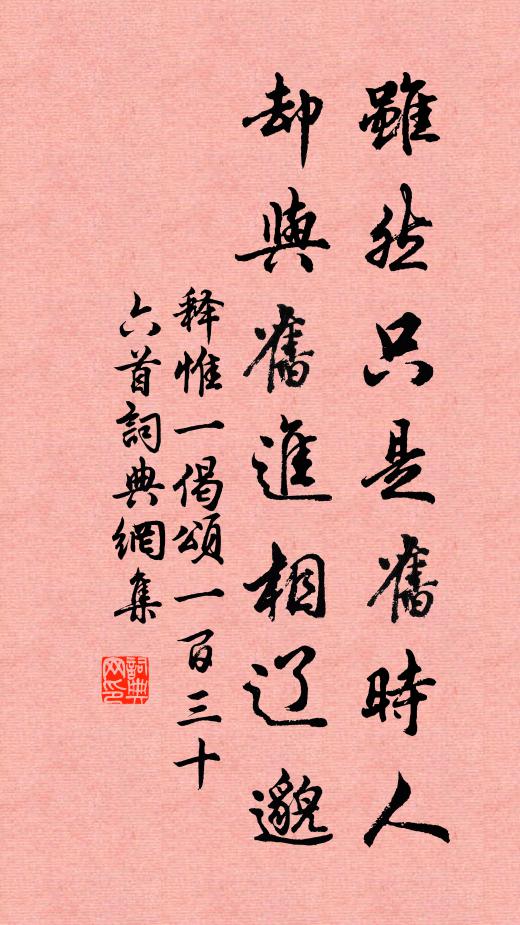 雖然只是舊時人
却與舊進相辽邈
释惟一偈頌一百三十
六首詞典網集
詞典网印